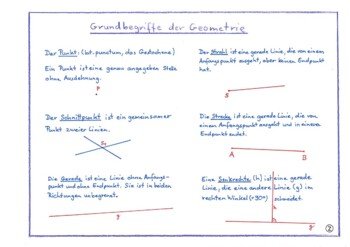 Grundbegriffe der Geometrie
Der Punkt: (lat. punctum, das Gestochene)
Ein Punkt ist eine genau angegeben Stelle
ohne Ausdehnung.
P
Der Schnittpunkt ist ein gemeinsamer
Punkt zweier Linien.
S
Die Gerade ist eine Linie ohne Anfangs-
punkt und ohne Endpunkt. Sie ist in beiden
Richtungen unbegrenzt.
g
Der Strahl ist eine gerade Linie, die von einem
Anfangspunkt ausgeht, aber keinen Endpunkt
hat.
S
Die Strecke ist eine gerade Linie, die von
einem Anfangspunkt ausgeht und in einem
Endpunkt endet.
A B
Eine Senkrechte (h) ist eine gerade
Linie, die eine andere Linie (g) im
rechten Winkel (=90°) schneidet.
h
g
2